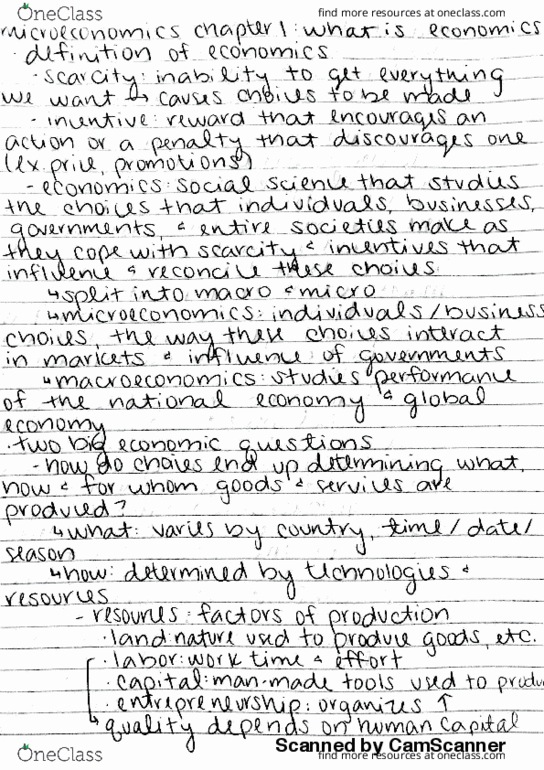 OneClass
find more resources at oneclass.com
microeconomics chapter 1: what is economics
· definition of economics
· scarcity: inability to get everything
we want ↳ causes choices to be made
- incentive: reward that encourages an
action or a penalty that discourages one
(ex. price, promotions)
- economics: social science that studies
the choices that individuals, businesses,
governments, & entire societies make as
they cope with scarcity & incentives that
influence & reconcile these choices
↳ split into macro & micro
↳ microeconomics: individuals/business
choices, the way these choices interact
in markets & influence of governments
↳ macroeconomics: studies performance
of the national economy & global
economy
· two big economic questions
- how do choies end up determining what,
how & for whom goods & services are
produced?
↳ what: varies by country, time/date/
season
↳ how: determined by technologies &
resources
- resources: factors of production
· land: nature used to produce goods, etc.
· labor: work time & effort
· capital: man-made tools used to produ
· entrepreneurship: organizes ↑
↳ quality depends on human capital
Scanned by CamScanner
OneClass
find more resources at oneclass.com